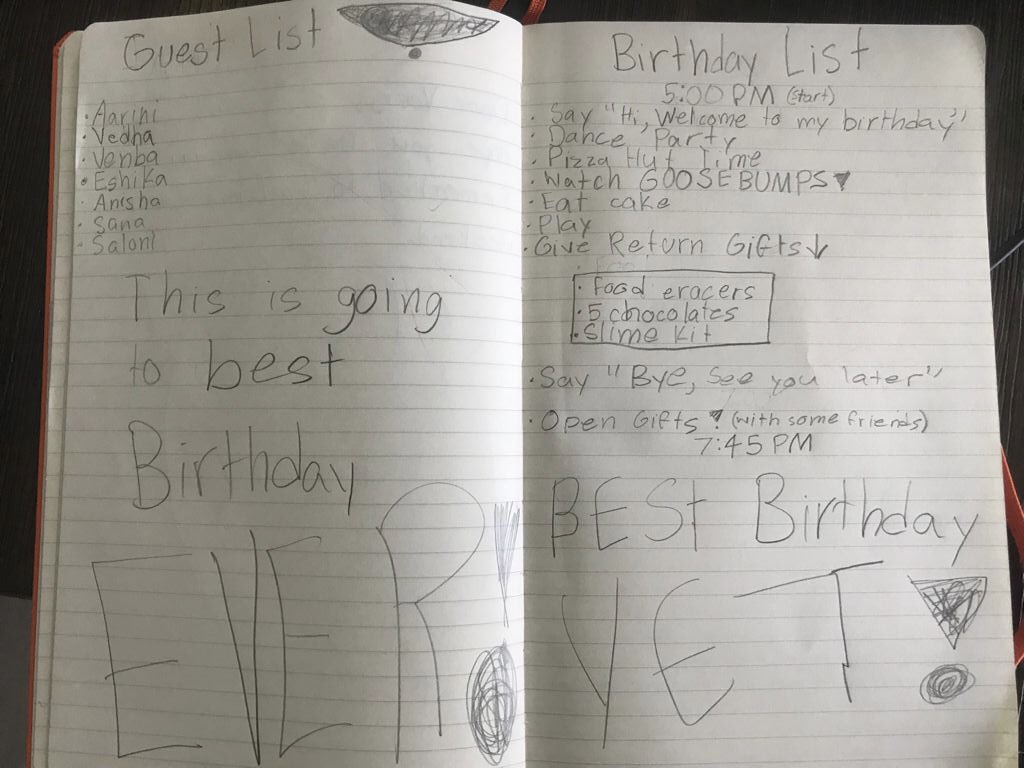 Guest List
· Aarini
· Vedha
· Venba
· Eshika
· Anisha
· Sana
· Saloni
This is going
to best
Birthday
EVER!
Birthday List
5:00 PM (start)
· Say "Hi, Welcome to my birthday"
· Dance Party
· Pizza Hut Time
· Watch GOOSEBUMPS
· Eat cake
· Play
· Give Return Gifts ↓
· Food eracers
· 5 chocolates
· Slime Kit
· Say "Bye, See you later"
· Open Gifts! (with some friends)
7:45 PM
BESt Birthday
YET!